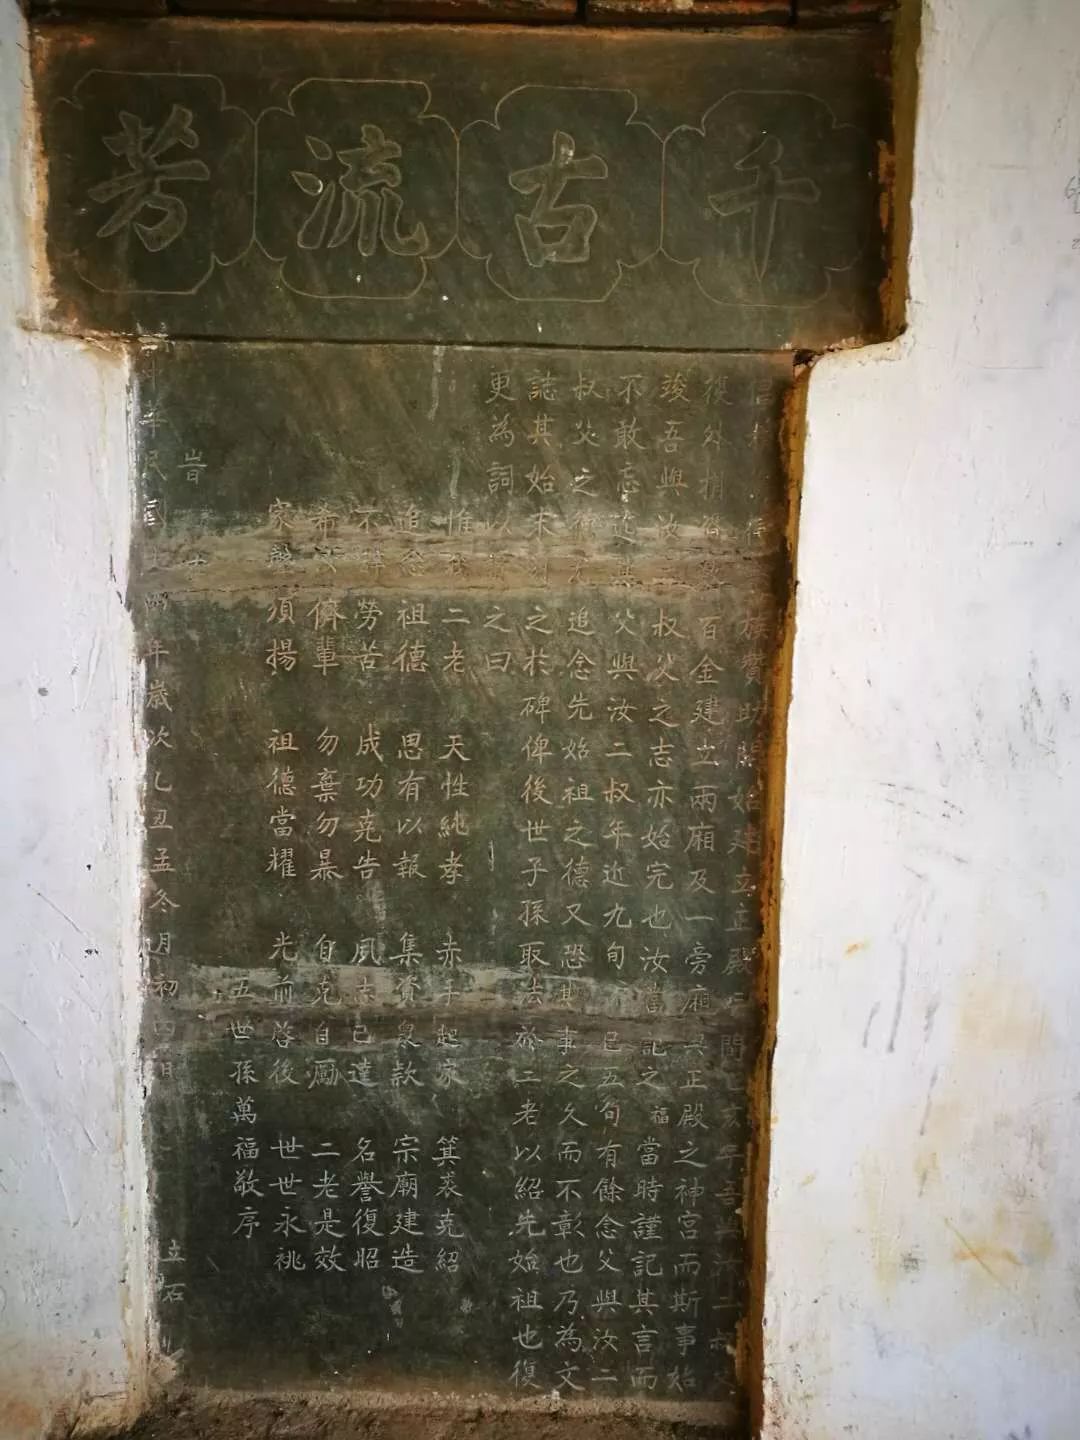 千古流芳
族 助 始建立正殿三間 亥年吾與汝二叔父
復外捐 百金建立兩廂及一旁廂與正殿之神宮而斯事始
竣吾與汝 叔父之志亦始完也汝當記之福當時謹記其言而
不敢忘 父與汝二叔年近九旬 已五旬有餘念父與汝二
叔父之 追念先始祖之德又恐其事之久而不彰也乃為文
誌其始末 之於碑俾後世子孫取法於二老以紹先始祖也復
更為詞以 之曰
惟 二老 天性純孝 赤手起家 箕裘克紹
追念祖德 思有以報 集資 款 宗廟建造
不 勞苦 成功堯告 夙志已達 名譽復昭
希 儕輩 勿棄勿暴 自克自勵 二老是效
家 須揚 祖德當耀 光前啓後 世世永祧
五世孫萬福敬序
旹
民國十四年歲次乙丑孟冬月初四日 立石